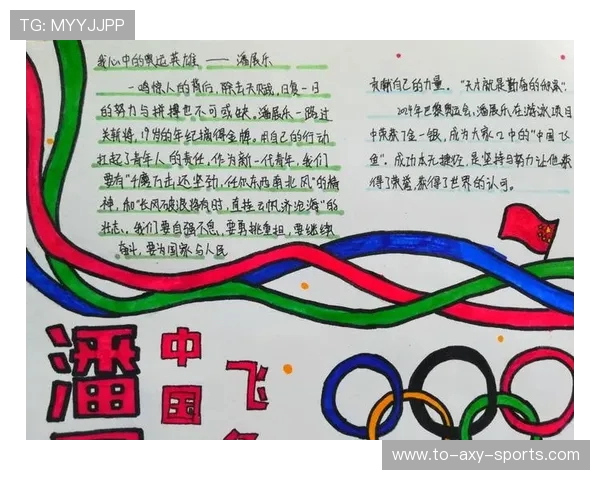 TG: MYYJJPP
我心中的奥运英雄 —— 潘展乐
一鸣惊人的背后，除去天赋，日复一日
的努力与拼搏也不可或缺。潘展乐一路过
关斩将，19岁的年纪摘得金牌。用自己的行动
扛起了青年人的责任，作为新一代青年，我们
要有“千磨万击还坚劲，任尔东西南北风”的精
神，如“长风破浪会有时，直挂云帆济沧海”的
壮志，我们要自强不息，要勇挑重担，要继续
奋斗，要为国家与人民
贡献自己的力量。“天才就是勤奋的积累”。
2024年巴黎奥运会，潘展乐在游泳项目
中荣获2金一银，成为大家口中的“中国飞
鱼”，成功本无捷径，是坚持与努力让他获
得了荣誉，赢得了世界的认可。
潘
中国
飞
www.to-axy-sports.com